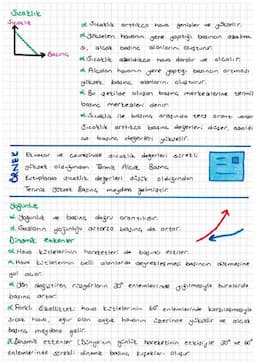 Sıcaklık
Sıcaklık
Basınç
Sıcaklık arttıkça hava genişler ve yükselir.
Yükselen havanın yere yaptığı basıncın azalması
alçak basınç alanlarını oluşturur.
Sıcaklık azaldıkça hava daralır ve alçalır.
Alçalan havanın yere yaptığı basıncın artması
yüksek basınç alanlarını oluşturur.
Bu şekilde oluşan basınç merkezlerine termik
basınç merkezleri denir.
Sıcaklık ile basınç arasında ters orantı vardır
Sıcaklık arttıkça basınç değerleri düşer, azaldıkça
basınç değerleri yükselir.
ÖRNEK
Ekvator ve çevresinde sıcaklık değerleri sürekli
yüksek olduğundan Termik Alçak Basınç
kutuplarda sıcaklık değerleri düşük olduğundan
Termik Yüksek Basınç meydana gelmiştir.
Yoğunluk
Yoğunluk ve basınç doğru orantılıdır.
Gazların yoğunluğu artarsa basınç da artar.
Dinamik etkenler
Hava kütlelerinin hareketleri de basıncı etkiler.
Hava kütlelerinin belli alanlarda seyrekleşmesi basıncın düşmesine
yol açar.
Yön değiştiren rüzgarların 30° enlemlerinde yığılmasıyla buralarda
basınç artar.
Farklı özellikteki hava kütlelerinin 60° enlemlerinde karşılaşmasıyla
sıcak hava, ağır olan soğuk havanın üzerinde yükselir ve alçak
basınç meydana gelir.
Dinamik etkenler (Dünya'nın günlük hareketinin etkisiyle 30° ve 60°
enlemlerinde sürekli dinamik basınç kuşakları oluşur.